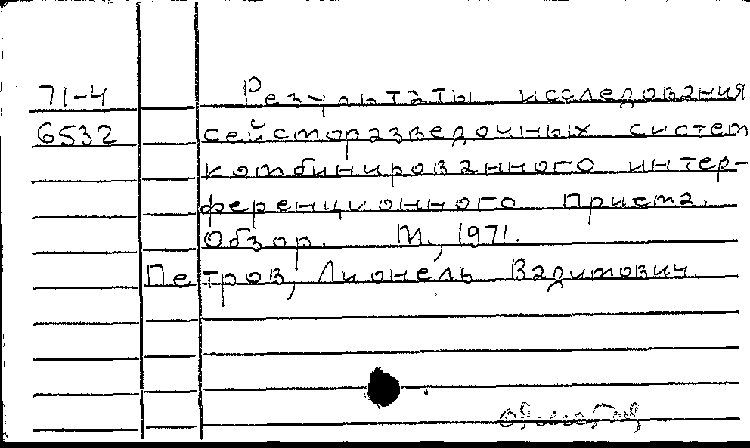 71-4 Результаты исследования
6532 сейсморазведочных систем
комбинированного интер-
ференционного приема.
Обзор. М., 1971.
Петров, Лионель Вадимович